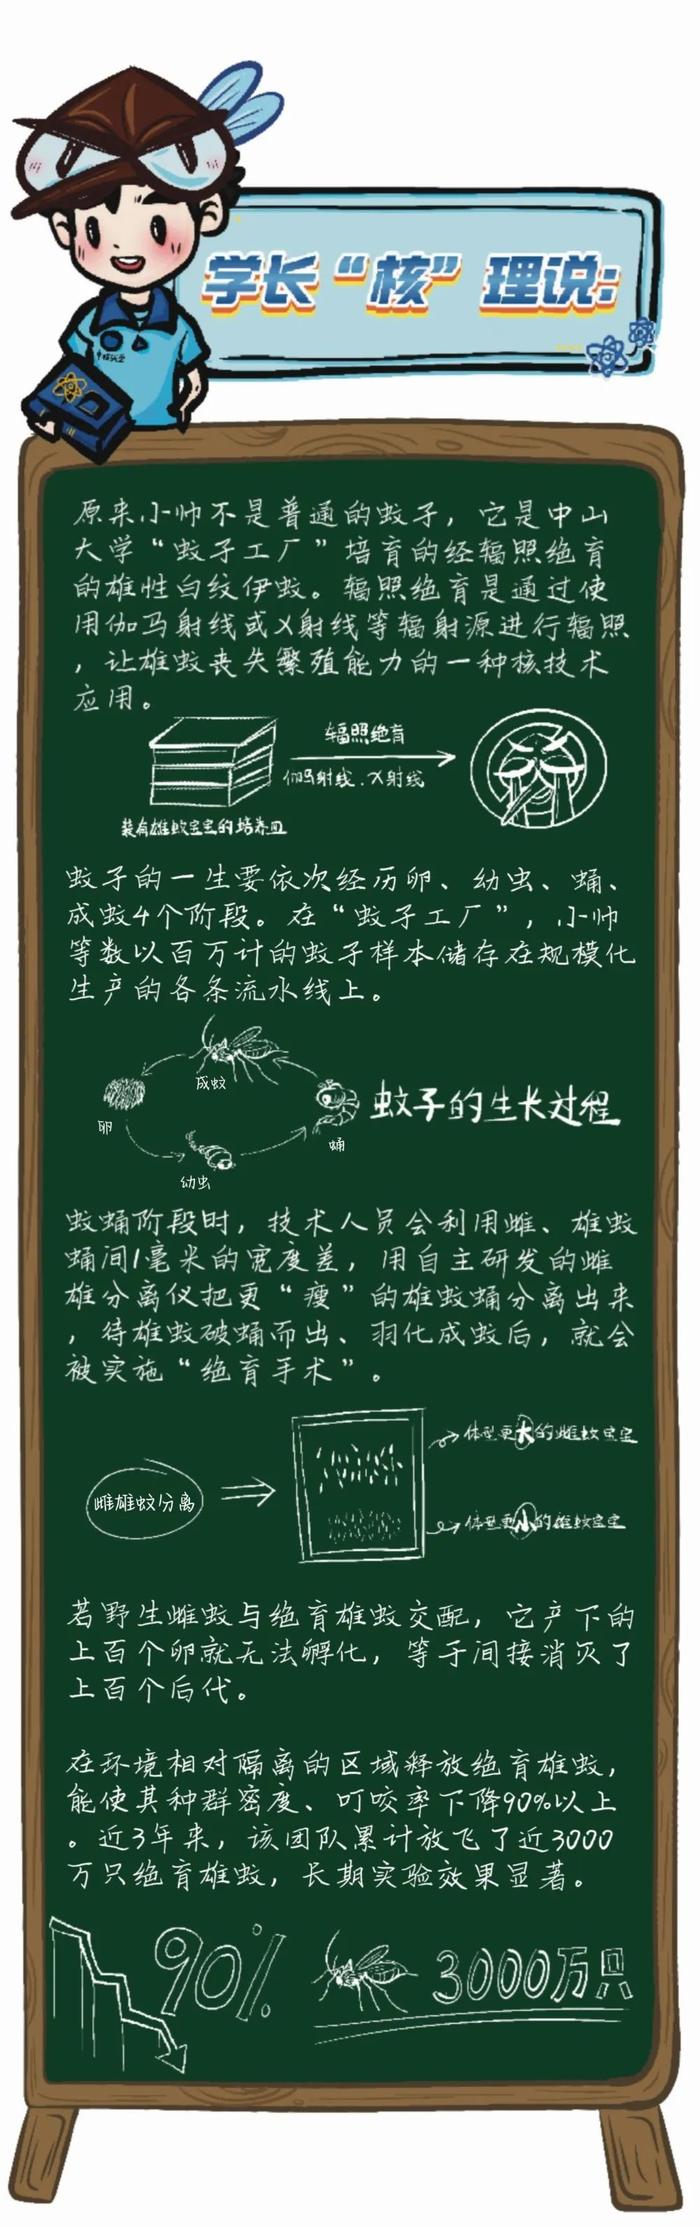 学长“核”理说:
原来小帅不是普通的蚊子，它是中山
大学“蚊子工厂”培育的经辐照绝育
的雄性白纹伊蚊。辐照绝育是通过使
用伽马射线或X射线等辐射源进行辐照
，让雄蚊丧失繁殖能力的一种核技术
应用。
辐照绝育
伽马射线、X射线
装有雄蚊宝宝的培养皿
蚊子的一生要依次经历卵、幼虫、蛹、
成蚊4个阶段。在“蚊子工厂”，小帅
等数以百万计的蚊子样本储存在规模化
生产的各条流水线上。
成蚊
卵
蛹
幼虫
蚊子的生长过程
蚊蛹阶段时，技术人员会利用雌、雄蚊
蛹间1毫米的宽度差，用自主研发的雌
雄分离仪把更“瘦”的雄蚊蛹分离出来
，待雄蚊破蛹而出、羽化成蚊后，就会
被实施“绝育手术”。
体型更大的雌蚊宝宝
雌雄蚊分离
体型更小的雄蚊宝宝
若野生雌蚊与绝育雄蚊交配，它产下的
上百个卵就无法孵化，等于间接消灭了
上百个后代。
在环境相对隔离的区域释放绝育雄蚊，
能使其种群密度、叮咬率下降90%以上
。近3年来，该团队累计放飞了近3000
万只绝育雄蚊，长期实验效果显著。
90%
3000万只